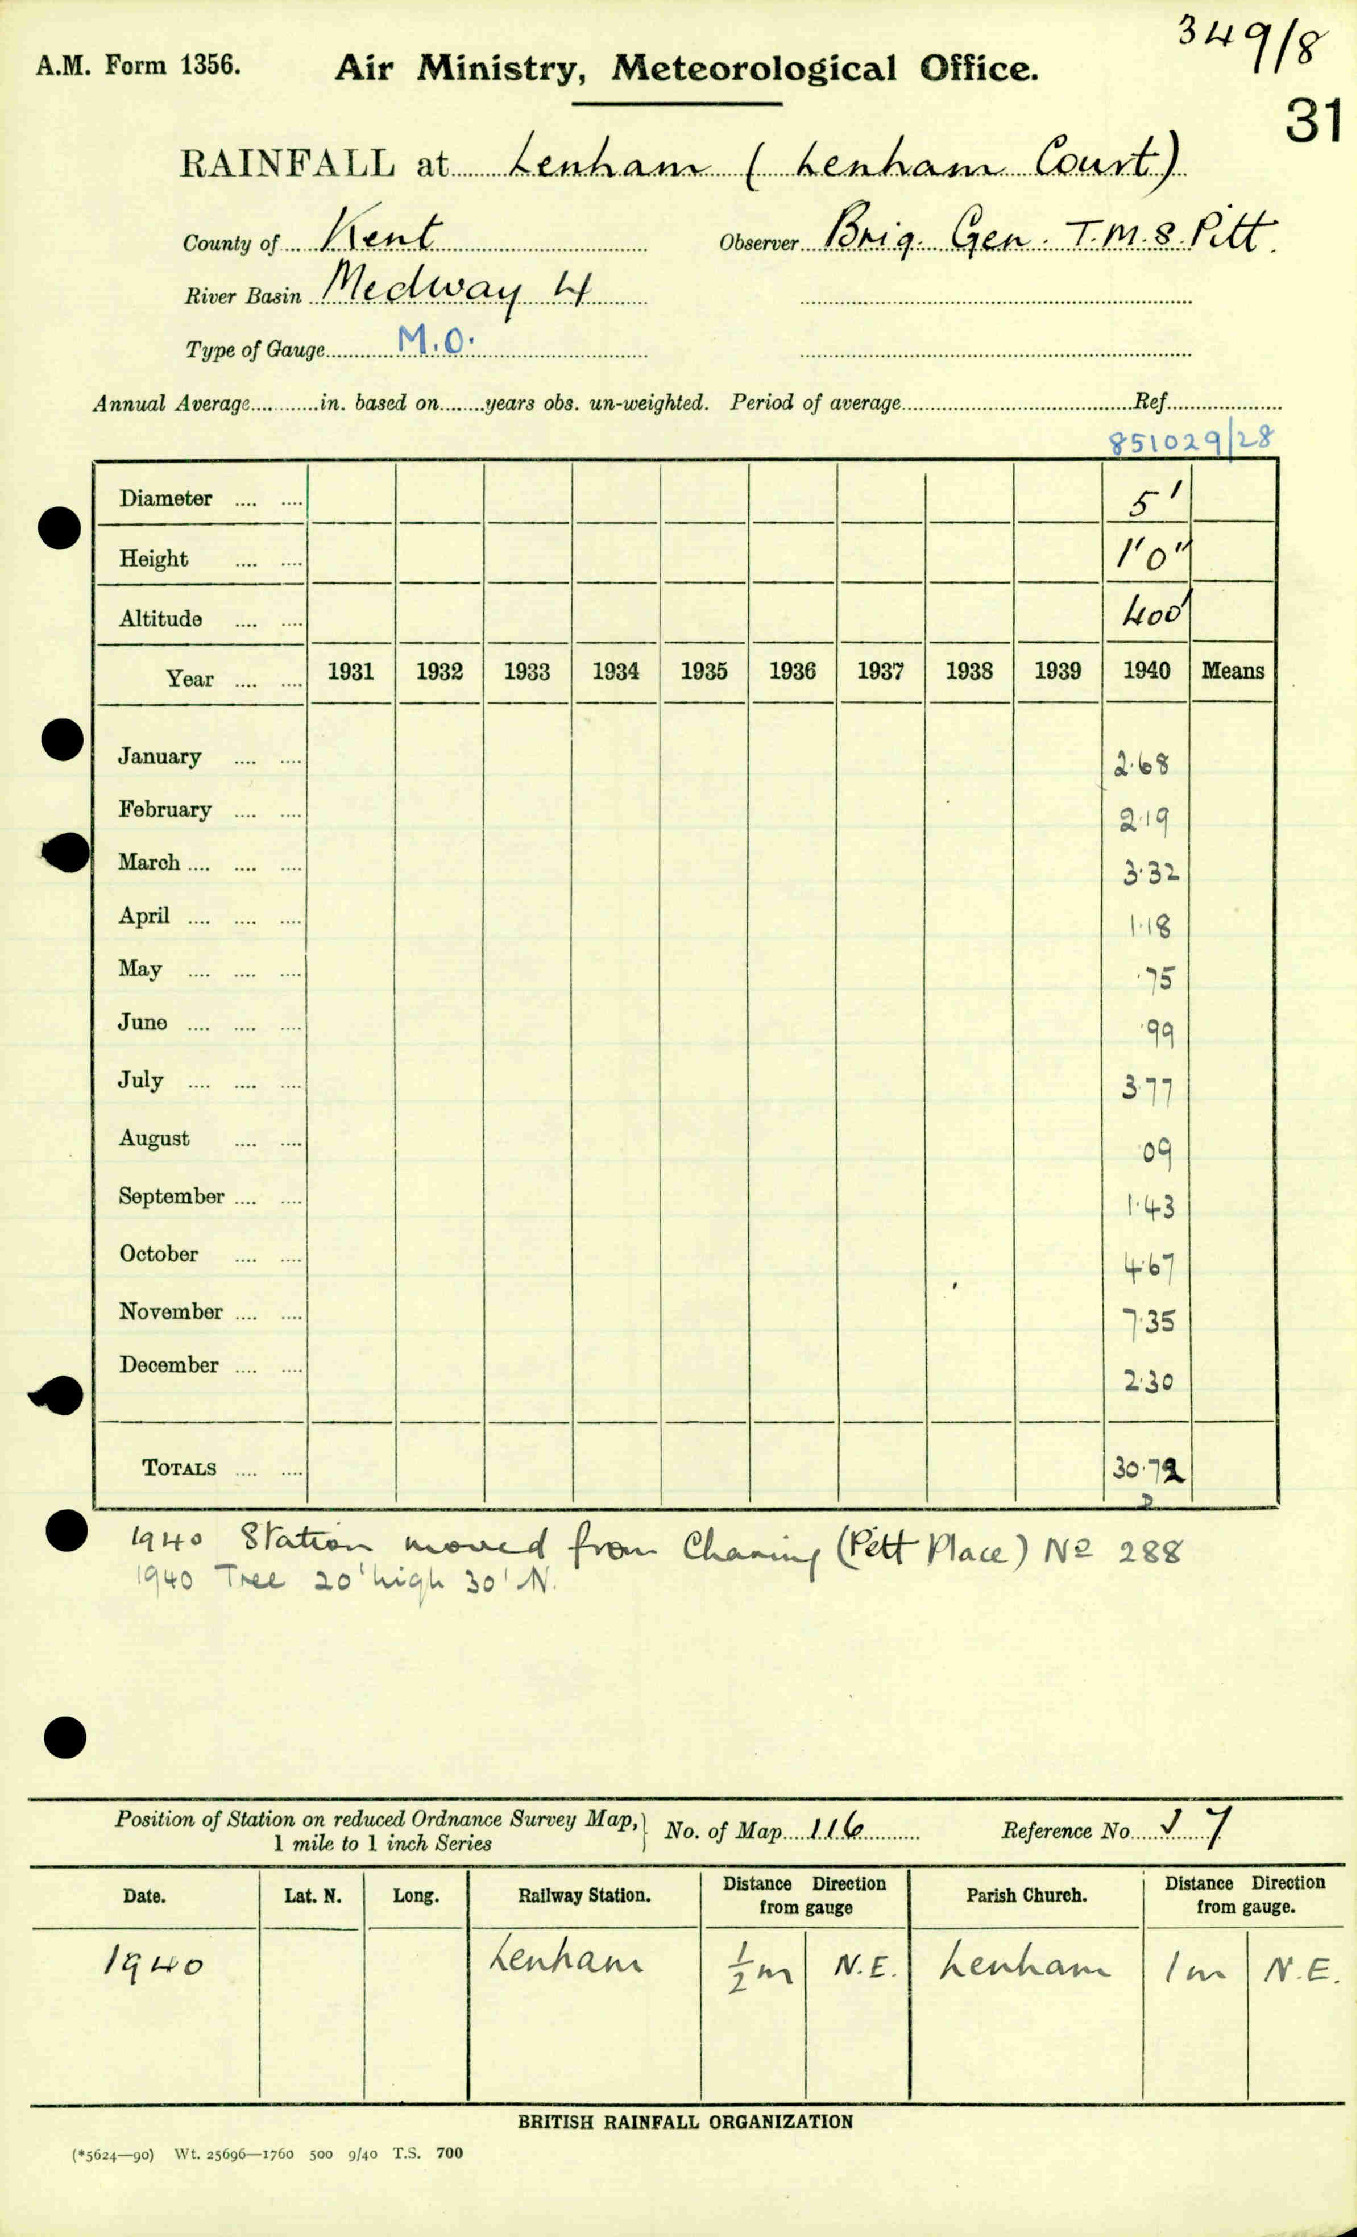 349/8
A.M. Form 1356. Air Ministry, Meteorological Office.
31
RAINFALL at Lenham (Lenham Court)
County of Kent Observer Brig. Gen. T.M.S. Pitt.
River Basin Medway 4
Type of Gauge M.O.
Annual Average............in. based on........years obs. un-weighted. Period of average........Ref........
851029/28
Diameter .... .... 5'
Height .... .... 1'0"
Altitude .... .... 400'
Year .... .... 1931 1932 1933 1934 1935 1936 1937 1938 1939 1940 Means
January .... .... 2.68
February .... .... 2.19
March .... .... .... 3.32
April .... .... .... 1.18
May .... .... .... .75
June .... .... .... .99
July .... .... .... 3.77
August .... .... .09
September .... .... 1.43
October .... .... 4.67
November .... .... 7.35
December .... .... 2.30
TOTALS .... .... 30.72
2
1940 Station moved from Charing (Pett Place) No 288
1940 Tree 20' high 30' N.
Position of Station on reduced Ordnance Survey Map, No. of Map 116 Reference No. J 7
1 mile to 1 inch Series
Date. Lat. N. Long. Railway Station. Distance Direction from gauge Parish Church. Distance Direction from gauge.
1940 Lenham ½m N.E. Lenham 1m N.E.
BRITISH RAINFALL ORGANIZATION
(*5624—90) Wt. 25696—1760 500 9/40 T.S. 700